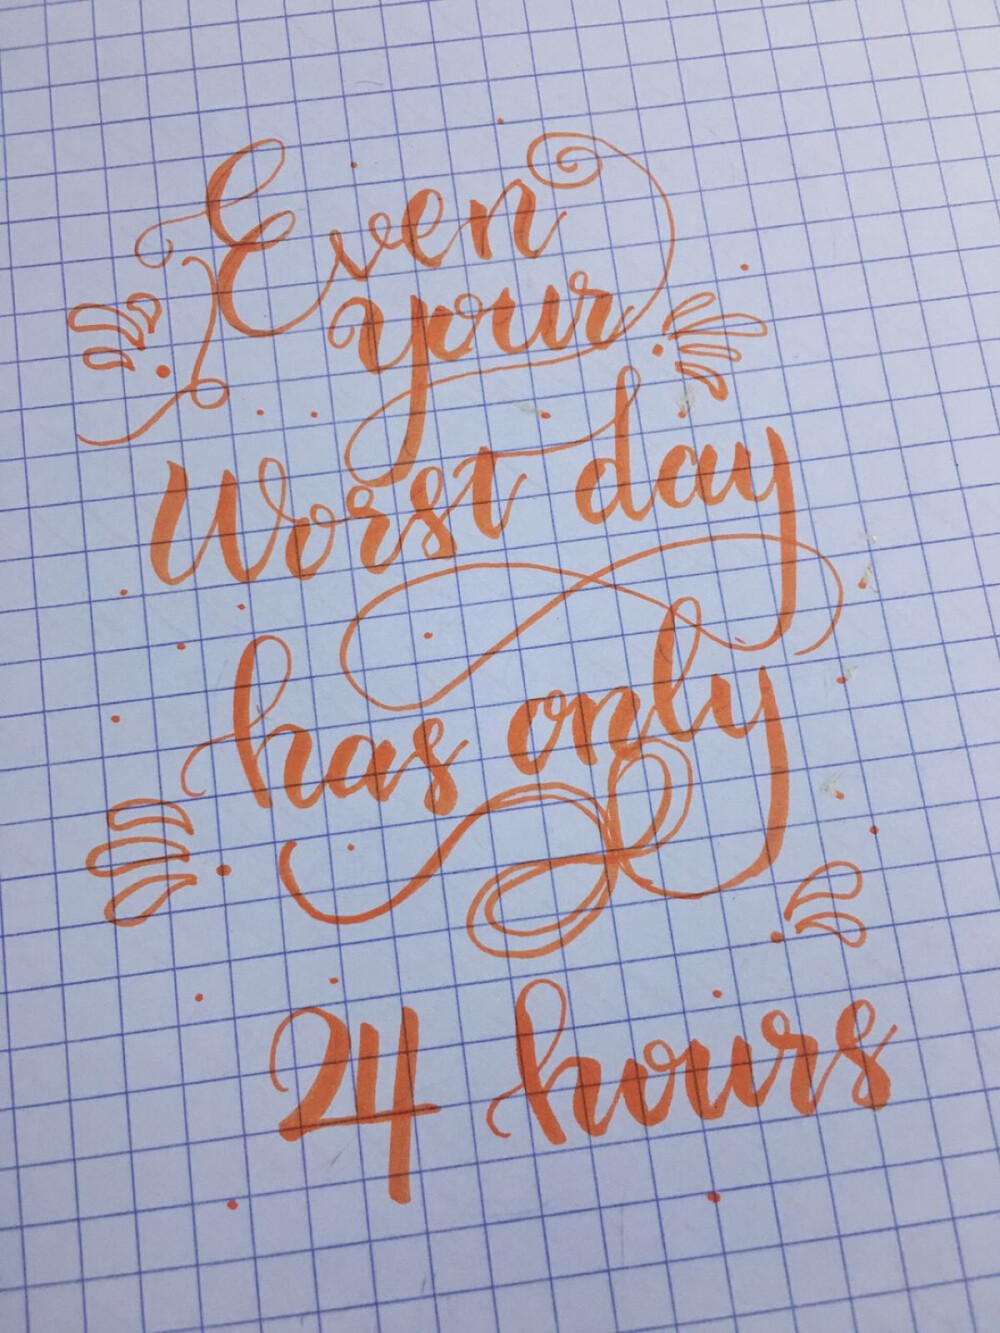 Even
your
Worst day
has only
24 hours